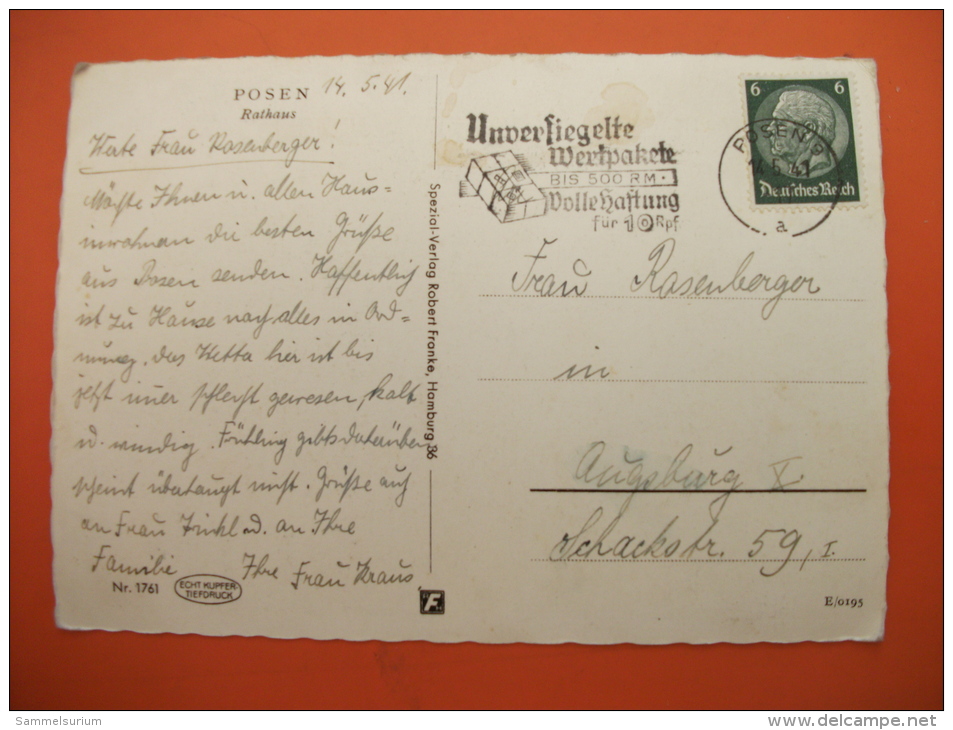 POSEN 14. 5. 41.
Rathaus
Werte Frau Rosenberger!
Möchte Ihnen u. allen Haus-
inwohnern die besten Grüße
aus Posen senden. Hoffentlich
ist zu Hause noch alles in Ord-
nung. das Wetter hier ist bis
jetzt immer schlecht gewesen, kalt
u. windig. Frühling gibts da drüben
scheint überhaupt nicht. Grüße auch
an Frau u. an Ihre
Familie Ihre Frau Kraus
Nr. 1761 ECHT KUPFER-
TIEFDRUCK
Spezial-Verlag Robert Franke, Hamburg 36
F
Unversiegelte
Wertpakete
BIS 500 RM.
Volle Haftung
für 10 Rpf.
POSEN
14.5.41
a
6 6
Deutsches Reich
Frau Rosenberger
in
Augsburg X.
Schackstr. 59, I.
E/0195
Sammelsurium
http://www.delcampe.net